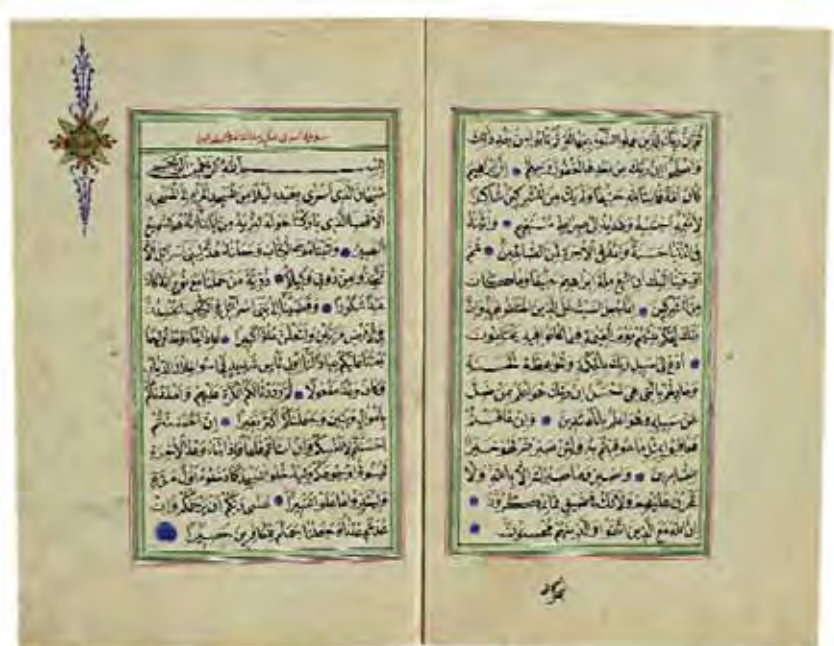 ثم ان ربك للذين عملوا السوء بجهالة ثم تابوا من بعد ذلك
واصلحوا ان ربك من بعدها لغفور رحيم ان ابرهيم
كان امة قانتا لله حنيفا ولم يك من المشركين شاكرا
لانعمه اجتبيه وهديه الى صراط مستقيم واتيناه
في الدنيا حسنة وانه في الاخرة لمن الصالحين ثم
اوحينا اليك ان اتبع ملة ابراهيم حنيفا وما كان
من المشركين انما جعل السبت على الذين اختلفوا فيه وان
ربك ليحكم بينهم يوم القيمة فيما كانوا فيه يختلفون
ادع الى سبيل ربك بالحكمة والموعظة الحسنة
وجادلهم بالتي هي احسن ان ربك هو اعلم بمن ضل
عن سبيله وهو اعلم بالمهتدين وان عاقبتم
فعاقبوا بمثل ما عوقبتم به ولئن صبرتم لهو خير
للصابرين واصبر وما صبرك الا بالله ولا
تحزن عليهم ولا تك في ضيق مما يمكرون
ان الله مع الذين اتقوا والذين هم محسنون
بسم الله الرحمن الرحيم
سبحان الذي اسرى بعبده ليلا من المسجد الحرام الى المسجد
الاقصا الذي باركنا حوله لنريه من اياتنا انه هو السميع
البصير واتينا موسى الكتاب وجعلناه هدى لبني اسرائيل الا
تتخذوا من دوني وكيلا ذرية من حملنا مع نوح انه كان
عبدا شكورا وقضينا الى بني اسرائيل في الكتاب لتفسدن
في الارض مرتين ولتعلن علوا كبيرا فاذا جاء وعد اوليهما
بعثنا عليكم عبادا لنا اولي باس شديد فجاسوا خلال الديار
وكان وعدا مفعولا ثم رددنا لكم الكرة عليهم وامددناكم
باموال وبنين وجعلناكم اكثر نفيرا ان احسنتم
احسنتم لانفسكم وان اساتم فلها فاذا جاء وعد الاخرة
ليسوؤا وجوهكم وليدخلوا المسجد كما دخلوه اول مرة
وليتبروا ما علوا تتبيرا عسى ربكم ان يرحمكم وان
عدتم عدنا وجعلنا جهنم للكافرين حصيرا